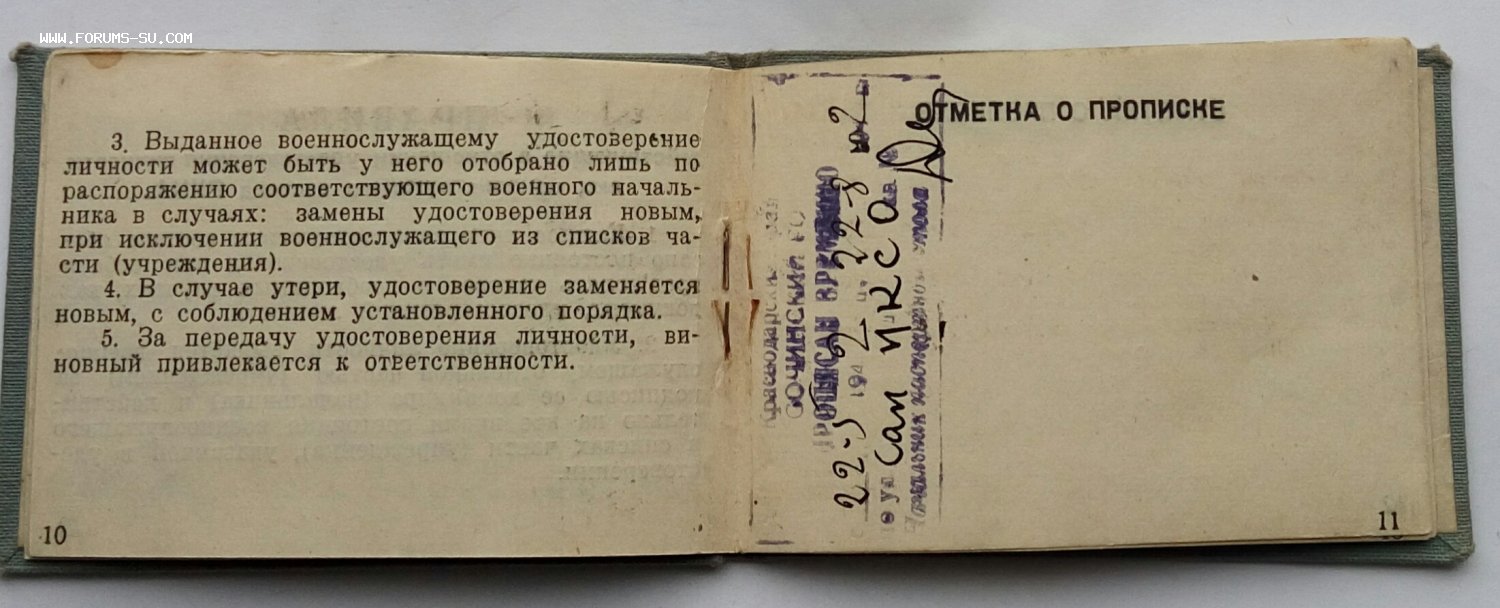 WWW.FORUMS-SU.COM
3. Выданное военнослужащему удостоверение
личности может быть у него отобрано лишь по
распоряжению соответствующего военного началь-
ника в случаях: замены удостоверения новым,
при исключении военнослужащего из списков ча-
сти (учреждения).
4. В случае утери, удостоверение заменяется
новым, с соблюдением установленного порядка.
5. За передачу удостоверения личности, ви-
новный привлекается к ответственности.
10
ОТМЕТКА О ПРОПИСКЕ
Краснодарский
СОЧИНСКИЙ ГО
ПРОПИСАН ВРЕМЕННО
22-5 194 22-8
ул Сан ИКСО
Начальник паспортного стола
11